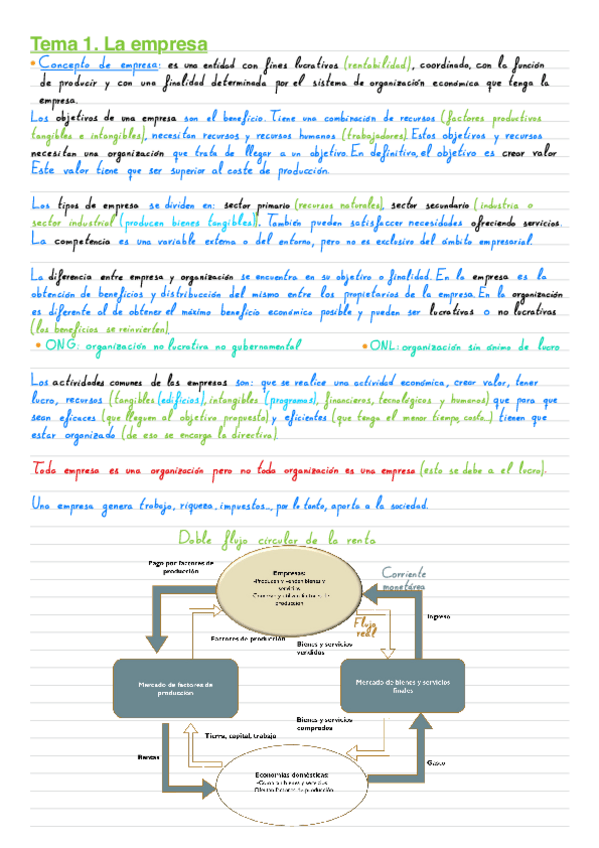 Tema 1. La empresa
• Concepto de empresa: es una entidad con fines lucrativos (rentabilidad), coordinada, con la función
de producir y con una finalidad determinada por el sistema de organización económica que tenga la
empresa.
Los objetivos de una empresa son el beneficio. Tiene una combinación de recursos (factores productivos
tangibles e intangibles), necesitan recursos y recursos humanos (trabajadores). Estos objetivos y recursos
necesitan una organización que trata de llegar a un objetivo. En definitiva, el objetivo es crear valor
Este valor tiene que ser superior al coste de producción.
Los tipos de empresa se dividen en: sector primario (recursos naturales), sector secundario (industria o
sector industrial (producen bienes tangibles). También pueden satisfaccer necesidades ofreciendo servicios.
La competencia es una variable externa o del entorno, pero no es exclusivo del ámbito empresarial.
La diferencia entre empresa y organización se encuentra en su objetivo o finalidad. En la empresa es la
obtención de beneficios y distribucción del mismo entre los propietarios de la empresa. En la organización
es diferente al de obtener el máximo beneficio económico posible y pueden ser lucrativas o no lucrativas
(los beneficios se reinvierten).
• ONG: organización no lucrativa no gubernamental • ONL: organización sin ánimo de lucro
Las actividades comunes de las empresas son: que se realice una actividad económica, crear valor, tener
lucro, recursos (tangibles (edificios), intangibles (programas), financieros, tecnológicos y humanos) que para que
sean eficaces (que lleguen al objetivo propuesto) y eficientes (que tenga el menor tiempo, coste...) tienen que
estar organizado (de eso se encarga la directiva).
Toda empresa es una organización pero no toda organización es una empresa (esto se debe a el lucro).
Una empresa genera trabajo, riqueza, impuestos..., por lo tanto, aporta a la sociedad.
Doble flujo circular de la renta
Pago por factores de
producción
Empresas:
-Producen y venden bienes y
servicios
factores de
producción
Corriente
monetárea
Ingreso
Flujo
real
Factores de producción
Bienes y servicios
vendidos
Mercado de factores de
producción
Mercado de bienes y servicios
finales
Bienes y servicios
comprados
Tierra, capital, trabajo
Rentas
Gasto
Economías domésticas:
bienes y servicios
factores de producción